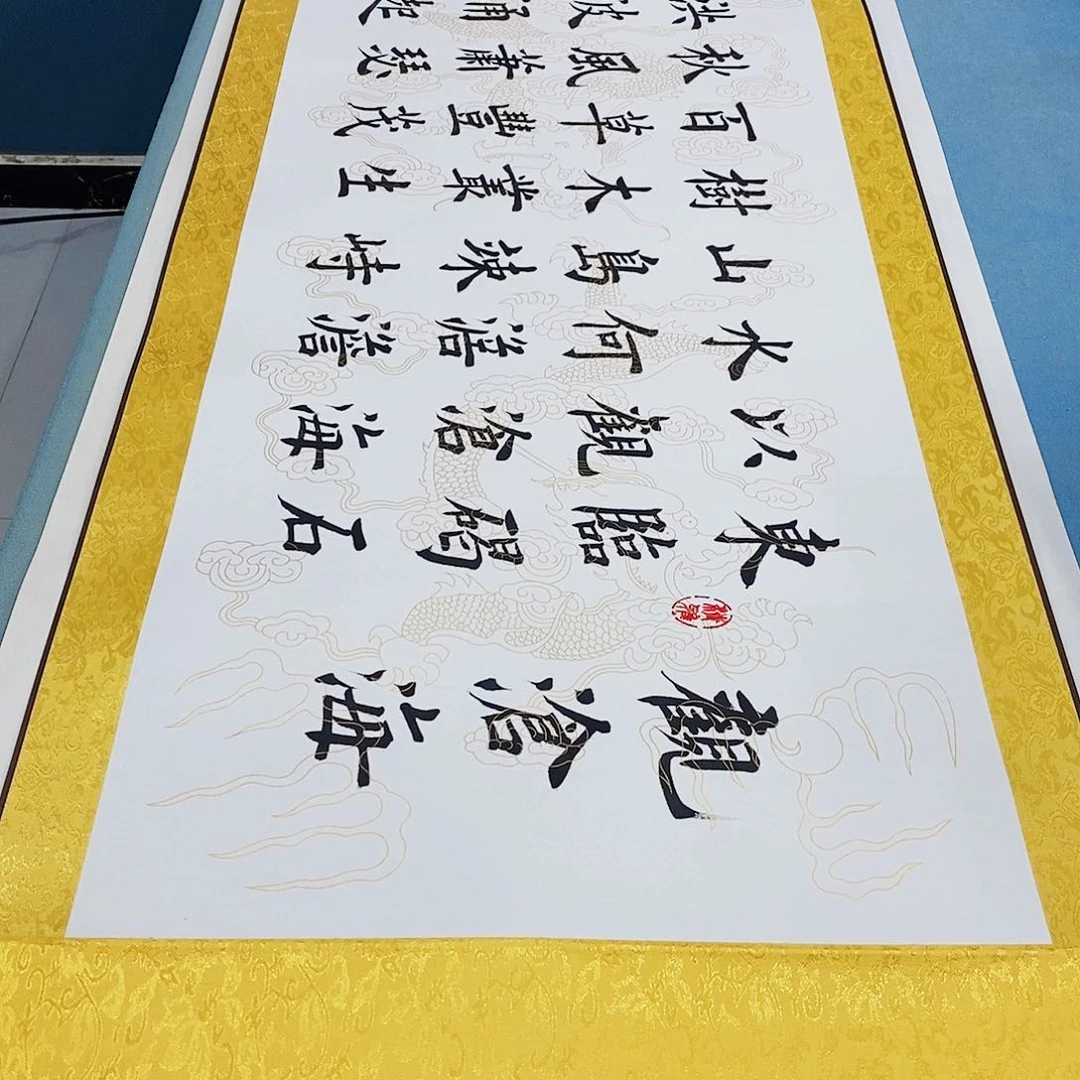 觀滄海
東臨碣石
以觀滄海
水何澹澹
山島竦峙
樹木叢生
百草豐茂
秋風蕭瑟
洪波涌起